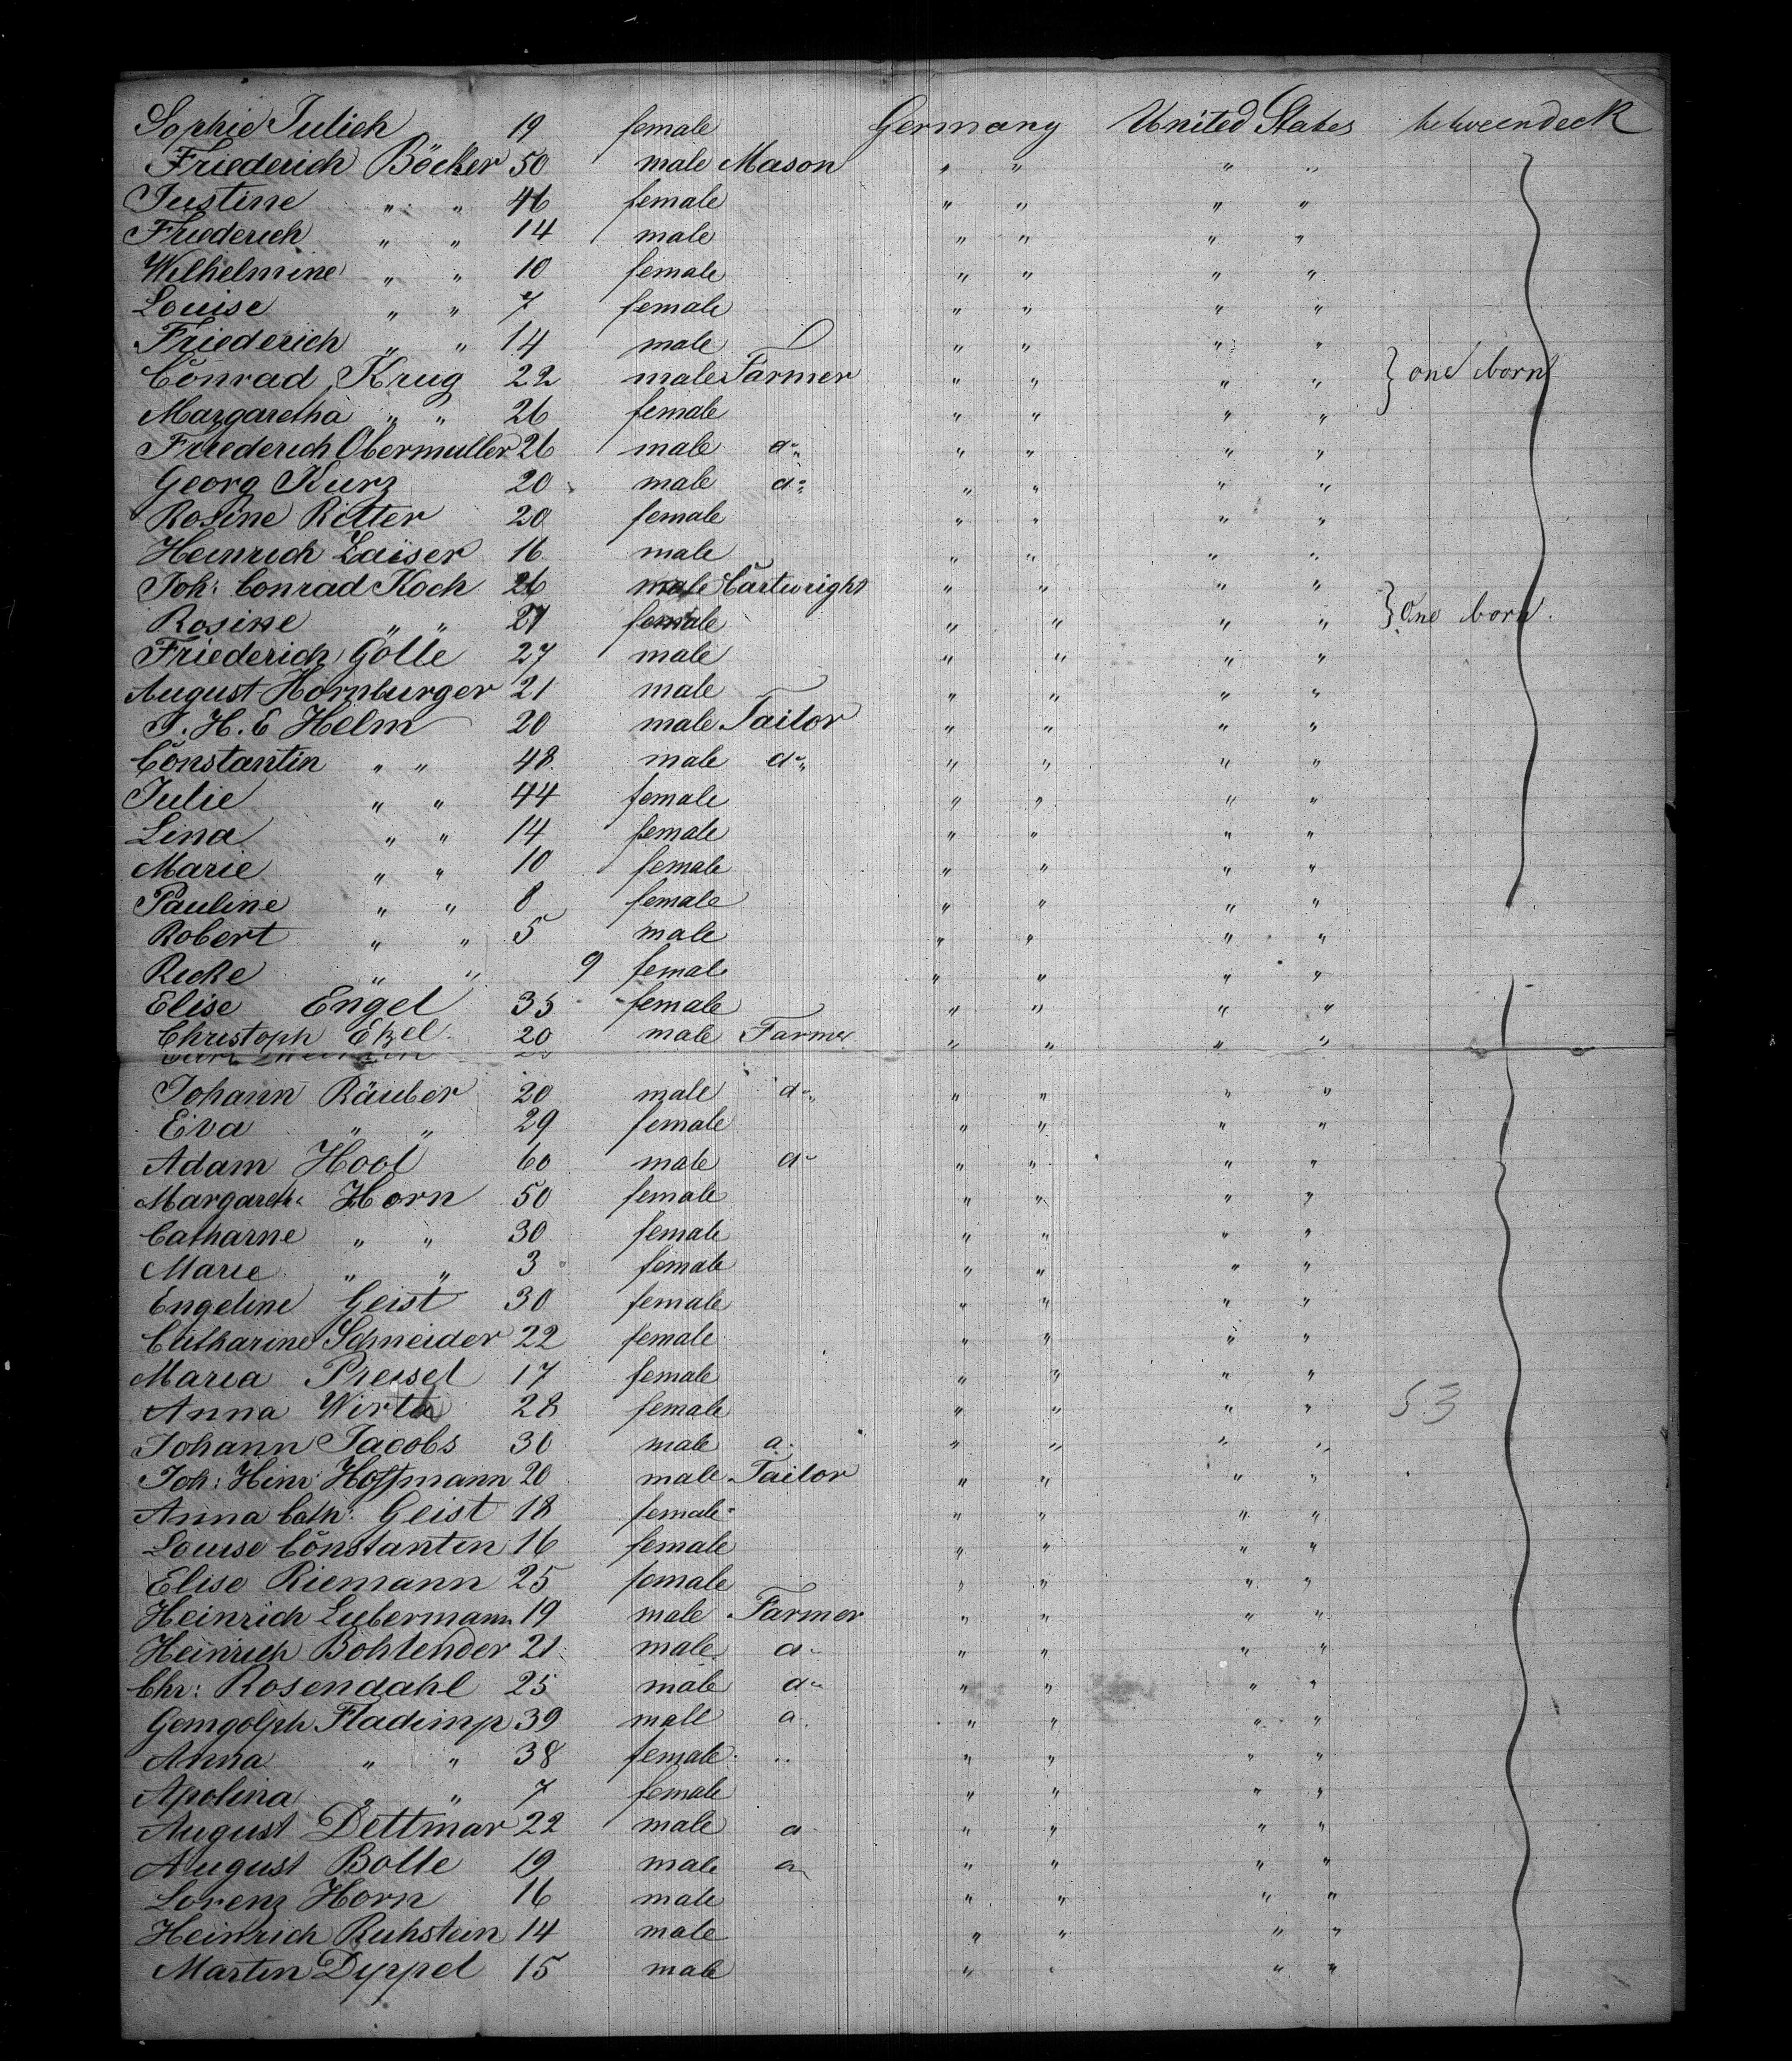 Sophie Julich 19 female Germany United States betweendeck
Friederich Böcker 50 male Mason " " " "
Justine " " 46 female " " " "
Friederich " " 14 male " " " "
Wilhelmine " " 10 female " " " "
Louise " " 7 female " " " "
Friederich " " 14 male " " " "
Conrad Krug 22 male Farmer " " " " } one born
Margaretha " " 26 female " " " "
Friederich Obermuller 26 male do " " " "
Georg Kurz 20 male do " " " "
Rosine Ritter 20 female " " " "
Heinrich Laiser 16 male " " " "
Joh: Conrad Koch 26 male Cartwright " " " "
Rosine " " 27 female " " " " } One born.
Friederich Gölle 27 male " " " "
August Hornburger 21 male " " " "
J. H. C Helm 20 male Tailor " " " "
Constantin " " 48 male do " " " "
Julie " " 44 female " " " "
Lina " " 14 female " " " "
Marie " " 10 female " " " "
Pauline " " 8 female " " " "
Robert " " 5 male " " " "
Ricke " " 9 female " " " "
Elise Engel 35 female " " " "
Christoph Etzel 20 male Farmer " " " "
Johann Räuber 20 male do " " " "
Eva " " 29 female " " " "
Adam Hool 60 male do " " " "
Margareth: Horn 50 female " " " "
Catharne " " 30 female " " " "
Marie " " 3 female " " " "
Engeline Geist 30 female " " " "
Catharine Schneider 22 female " " " "
Maria Preisel 17 female " " " "
Anna Wirth 28 female " " " " 53
Johann Jacobs 30 male do " " " "
Joh: Heinr: Hoffmann 20 male Tailor " " " "
Anna Cath: Geist 18 female " " " "
Louise Constanten 16 female " " " "
Elise Riemann 25 female " " " "
Heinrich Lubermann 19 male Farmer " " " "
Heinrich Bohlender 21 male do " " " "
Chr: Rosendahl 25 male do " " " "
Gemgolph Fladimp 39 male do " " " "
Anna " " 38 female " " " "
Apolina " " 7 female " " " "
August Dettmar 22 male do " " " "
August Bolle 19 male do " " " "
Lorenz Horn 16 male " " " "
Heinrich Ruhstein 14 male " " " "
Martin Dyppel 15 male " " " "